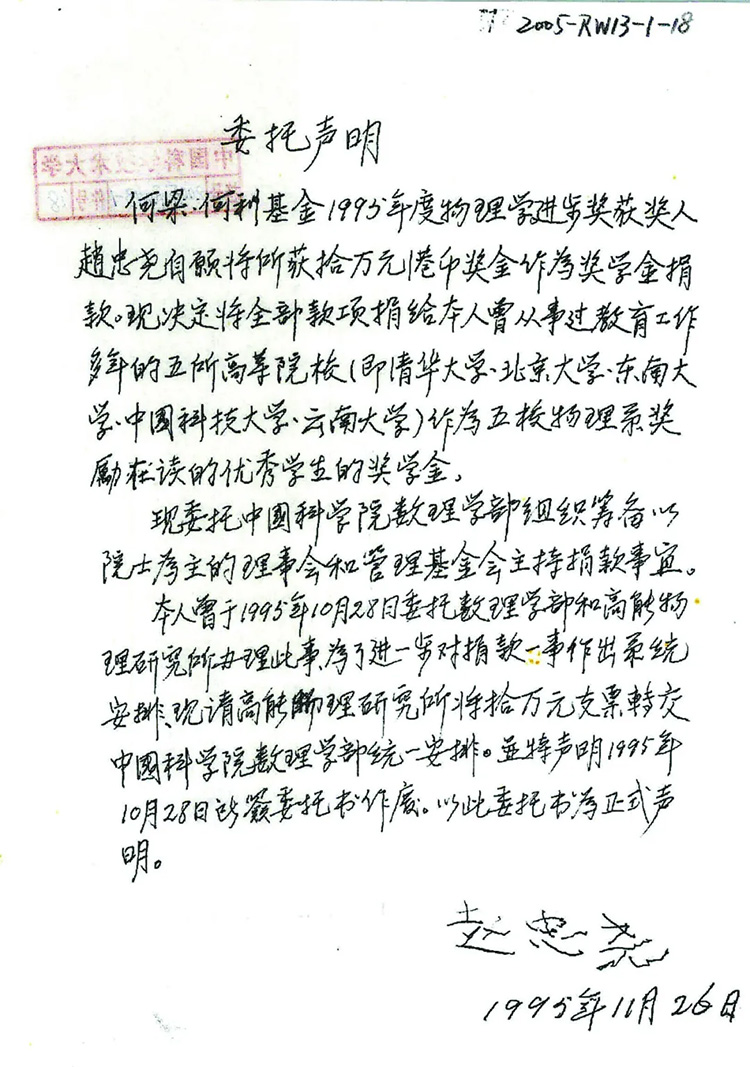 2005-RW13-1-18
委托声明
中国科学技术大学
何梁·何利基金1995年度物理学进步奖获奖人
趙忠尧自願将所获拾万元港币奖金作为奖学金捐
款。现决定将全部款项捐给本人曾从事过教育工作
多年的五所高等院校(即清华大学、北京大学、东南大
学、中國科技大学、云南大学)作为五校物理系奖
勵在读的优秀学生的奖学金。
现委托中國科学院数理学部组织筹备以
院士为主的理事会和管理基金会主持捐款事宜。
本人曾于1995年10月28日委托数理学部和高能物
理研究所办理此事,为了进一步对捐款一事作出系统
安排、现请高能物理研究所将拾万元支票轉交
中國科学院数理学部统一安排。並特声明1995年
10月28日所簽委托书作废。以此委托书为正式声
明。
赵忠尧
1995年11月26日